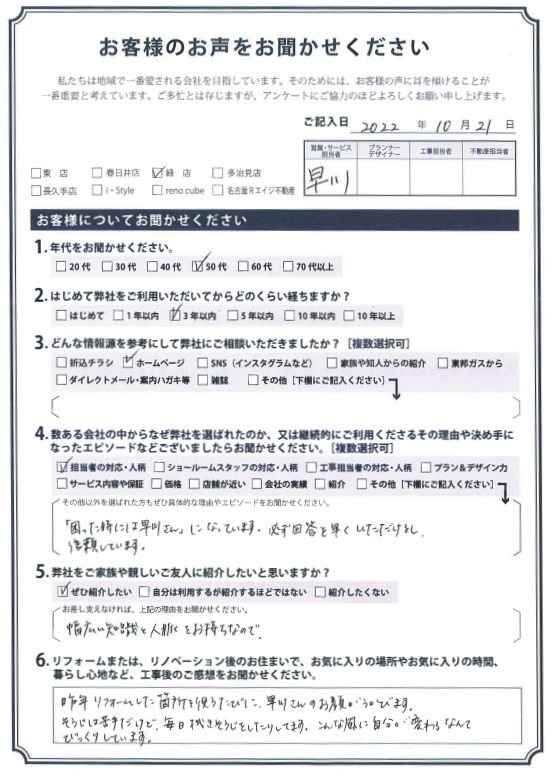 お客様のお声をお聞かせください
私たちは地域で一番愛される会社を目指しています。そのためには、お客様の声に耳を傾けることが
一番重要と考えています。ご多忙とは存じますが、アンケートにご協力のほどよろしくお願い申し上げます。
ご記入日 2022 年 10 月 21 日
営業・サービス担当者 プランナーデザイナー 工事担当者 不動産担当者
早川
□東 店 □春日井店 ☑緑 店 □多治見店
□長久手店 □i・Style □reno cube □名古屋Rエイジ不動産
お客様についてお聞かせください
1. 年代をお聞かせください。
□20代 □30代 □40代 ☑50代 □60代 □70代以上
2. はじめて弊社をご利用いただいてからどのくらい経ちますか？
□はじめて □1年以内 ☑3年以内 □5年以内 □10年以内 □10年以上
3. どんな情報源を参考にして弊社にご相談いただきましたか？［複数選択可］
□折込チラシ ☑ホームページ □SNS（インスタグラムなど） □家族や知人からの紹介 □東邦ガスから
□ダイレクトメール・案内ハガキ等 □雑誌 □その他［下欄にご記入ください］
4. 数ある会社の中からなぜ弊社を選ばれたのか、又は継続的にご利用くださるその理由や決め手に
なったエピソードなどございましたらお聞かせください。［複数選択可］
☑担当者の対応・人柄 □ショールームスタッフの対応・人柄 □工事担当者の対応・人柄 □プラン＆デザイン力
□サービス内容や保証 □価格 □店舗が近い □会社の実績 □紹介 □その他［下欄にご記入ください］
その他以外を選ばれた方もぜひ具体的な理由やエピソードをお聞かせください。
「困った時には早川さん」になっています。必ず回答を早くいただけるし、
信頼しています。
5. 弊社をご家族や親しいご友人に紹介したいと思いますか？
☑ぜひ紹介したい □自分は利用するが紹介するほどではない □紹介したくない
お差し支えなければ、上記の理由をお聞かせください。
幅広い知識と人脈をお持ちなので。
6. リフォームまたは、リノベーション後のお住まいで、お気に入りの場所やお気に入りの時間、
暮らし心地など、工事後のご感想をお聞かせください。
昨年リフォームした箇所を使うたびに、早川さんのお顔がうかびます。
そうじは苦手だけど、毎日拭きそうじをしたりしてます。こんな風に自分が変わるなんて
びっくりしています。